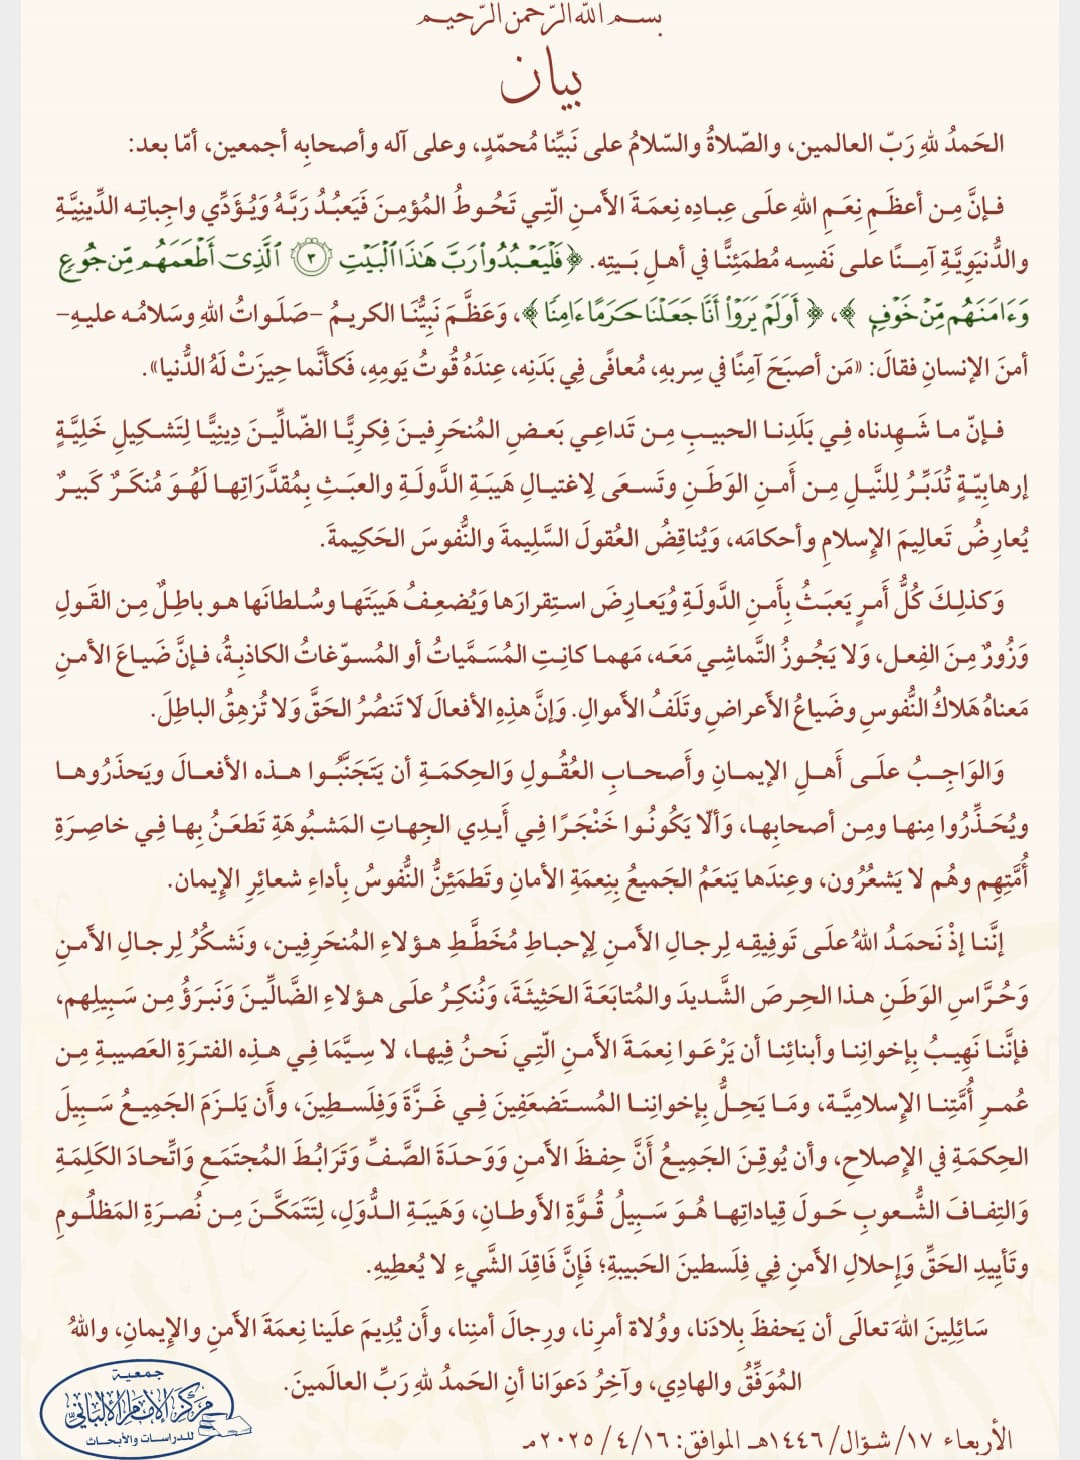 بسم الله الرّحمن الرّحيم
بيان
الحَمدُ للهِ رَبّ العالمين، والصّلاةُ والسّلامُ على نَبيِّنا مُحمّدٍ، وعلى آله وأصحابِه أجمعين، أمّا بعد:
فإنَّ مِن أعظَمِ نِعَمِ اللهِ علَى عِبادِه نِعمَةَ الأمنِ الّتِي تَحُوطُ المُؤمِنَ فَيَعبُدُ رَبَّهُ وَيُؤَدِّي واجِباتِه الدِّينِيَّةِ
والدُّنيَوِيَّةِ آمِنًا على نَفسِه مُطمَئِنًّا في أهلِ بَيتِه. ﴿فَلۡيَعۡبُدُواْ رَبَّ هَٰذَا ٱلۡبَيۡتِ ٣ ٱلَّذِيٓ أَطۡعَمَهُم مِّن جُوعٖ
وَءَامَنَهُم مِّنۡ خَوۡفِۭ﴾، ﴿أَوَلَمۡ يَرَوۡاْ أَنَّا جَعَلۡنَا حَرَمًا ءَامِنٗا﴾، وَعَظَّمَ نَبِيُّنَا الكريمُ –صَلَواتُ اللهِ وسَلامُه عليهِ–
أمنَ الإنسانِ فقالَ: «مَن أصبَحَ آمِنًا في سِربهِ، مُعافًى فِي بَدَنِه، عِندَهُ قُوتُ يَومِهِ، فَكأنَّما حِيزَتْ لَهُ الدُّنيا».
فإنّ ما شَهِدناه فِي بَلَدِنا الحبيبِ مِن تَداعِي بَعضِ المُنحَرِفينَ فِكرِيًّا الضّالِّينَ دِينِيًّا لِتَشكِيلِ خَلِيَّةٍ
إرهابِيّةٍ تُدَبِّرُ لِلنَّيلِ مِن أَمنِ الوَطَنِ وتَسعَى لِاغتيالِ هَيبَةِ الدَّولَةِ والعبَثِ بِمُقدَّرَاتِها لَهُوَ مُنكَرٌ كَبيرٌ
يُعارِضُ تَعالِيمَ الإسلامِ وأحكامَه، وَيُناقِضُ العُقولَ السَّلِيمةَ والنُّفوسَ الحَكِيمةَ.
وَكذلِكَ كُلُّ أَمرٍ يَعبَثُ بِأَمنِ الدَّولَةِ وُيَعارِضَ استِقرارَها وَيُضعِفُ هَيبَتَها وسُلطانَها هو باطِلٌ مِن القَولِ
وَزُورٌ مِنَ الفِعلِ، وَلا يَجُوزُ التَّماشِي مَعَه، مَهما كانَتِ المُسَمَّياتُ أو المُسوّغاتُ الكاذبِةُ، فإنَّ ضَياعَ الأمنِ
مَعناهُ هَلاكُ النُّفوسِ وضَياعُ الأعراضِ وتَلَفُ الأموالِ. وَإنَّ هذِهِ الأفعالَ لَا تَنصُرُ الحَقَّ وَلا تُزهِقُ الباطِلَ.
وَالوَاجِبُ علَى أَهلِ الإيمانِ وأَصحابِ العُقُولِ وَالحِكمَةِ أن يَتَجَنَّبُوا هذه الأفعالَ ويَحذَرُوها
ويُحَذِّرُوا مِنها ومِن أصحابِها، وَألّا يَكُونُوا خَنْجَرًا فِي أَيدِي الجِهاتِ المَشبُوهَةِ تَطعَنُ بِها فِي خاصِرَةِ
أُمَّتِهِم وهُم لا يَشعُرُون، وعِندَها يَنعَمُ الجَميعُ بِنِعمَةِ الأمانِ وتَطمَئِنُّ النُّفوسُ بِأداءِ شعائرِ الإيمان.
إنَّنا إذْ نَحمَدُ اللهُ علَى تَوفِيقِه لِرجالِ الأمنِ لِإحباطِ مُخَطَّطِ هؤلاءِ المُنحَرِفِين، ونَشكُرُ لِرجالِ الأمنِ
وَحُرَّاسِ الوَطَنِ هذا الحِرصَ الشَّديدَ والمُتابَعَةَ الحَثِيثَةَ، وَنُنكِرُ علَى هؤلاءِ الضَّالِّينَ وَنَبرَؤُ مِن سَبِيلِهم،
فإنَّنا نَهِيبُ بِإخوانِنا وأبنائِنا أن يَرْعَوا نِعمَةَ الأمنِ الّتِي نَحنُ فِيها، لا سِيَّمَا فِي هذِه الفترَةِ العَصيبةِ مِن
عُمرِ أُمَّتِنا الإسلامِيَّة، ومَا يَحِلُّ بِإخوانِنا المُستَضعَفِينَ فِي غَزَّةَ وَفِلَسطِينَ، وأَن يَلزَمَ الجَمِيعُ سَبِيلَ
الحِكمَةِ فِي الإصلاحِ، وأن يُوقِنَ الجَمِيعُ أَنَّ حِفظَ الأمنِ وَوَحدَةَ الصَّفِّ وَتَرَابُطَ المُجتَمَعِ وَاتِّحادَ الكَلِمَةِ
وَالتِفافَ الشُّعوبِ حَولَ قِياداتِها هُوَ سَبِيلُ قُوَّةِ الأوطانِ، وَهَيبَةِ الدُّوَلِ، لِتَتَمَكَّنَ مِن نُصرَةِ المَظلُومِ
وتَأييدِ الحَقِّ وَإحلالِ الأمنِ فِي فِلَسطينَ الحَبيبةِ؛ فَإنَّ فَاقِدَ الشَّيءِ لا يُعطِيهِ.
سَائِلِينَ اللهَ تعالَى أن يَحفظَ بِلادَنا، ووُلاةَ أمرِنا، ورِجالَ أمنِنا، وأَن يُدِيمَ علَينا نِعمَةَ الأَمنِ والإيمانِ، واللهُ
المُوَفِّقُ والهادِي، وآخِرُ دَعوَانا أنِ الحَمدُ للهِ رَبِّ العالَمينَ.
جمعية
مركز الإمام الألباني
للدراسات والأبحاث
الأربعاء ١٧/ شوّال/ ١٤٤٦هـ الموافق: ١٦/ ٤/ ٢٠٢٥ مـ